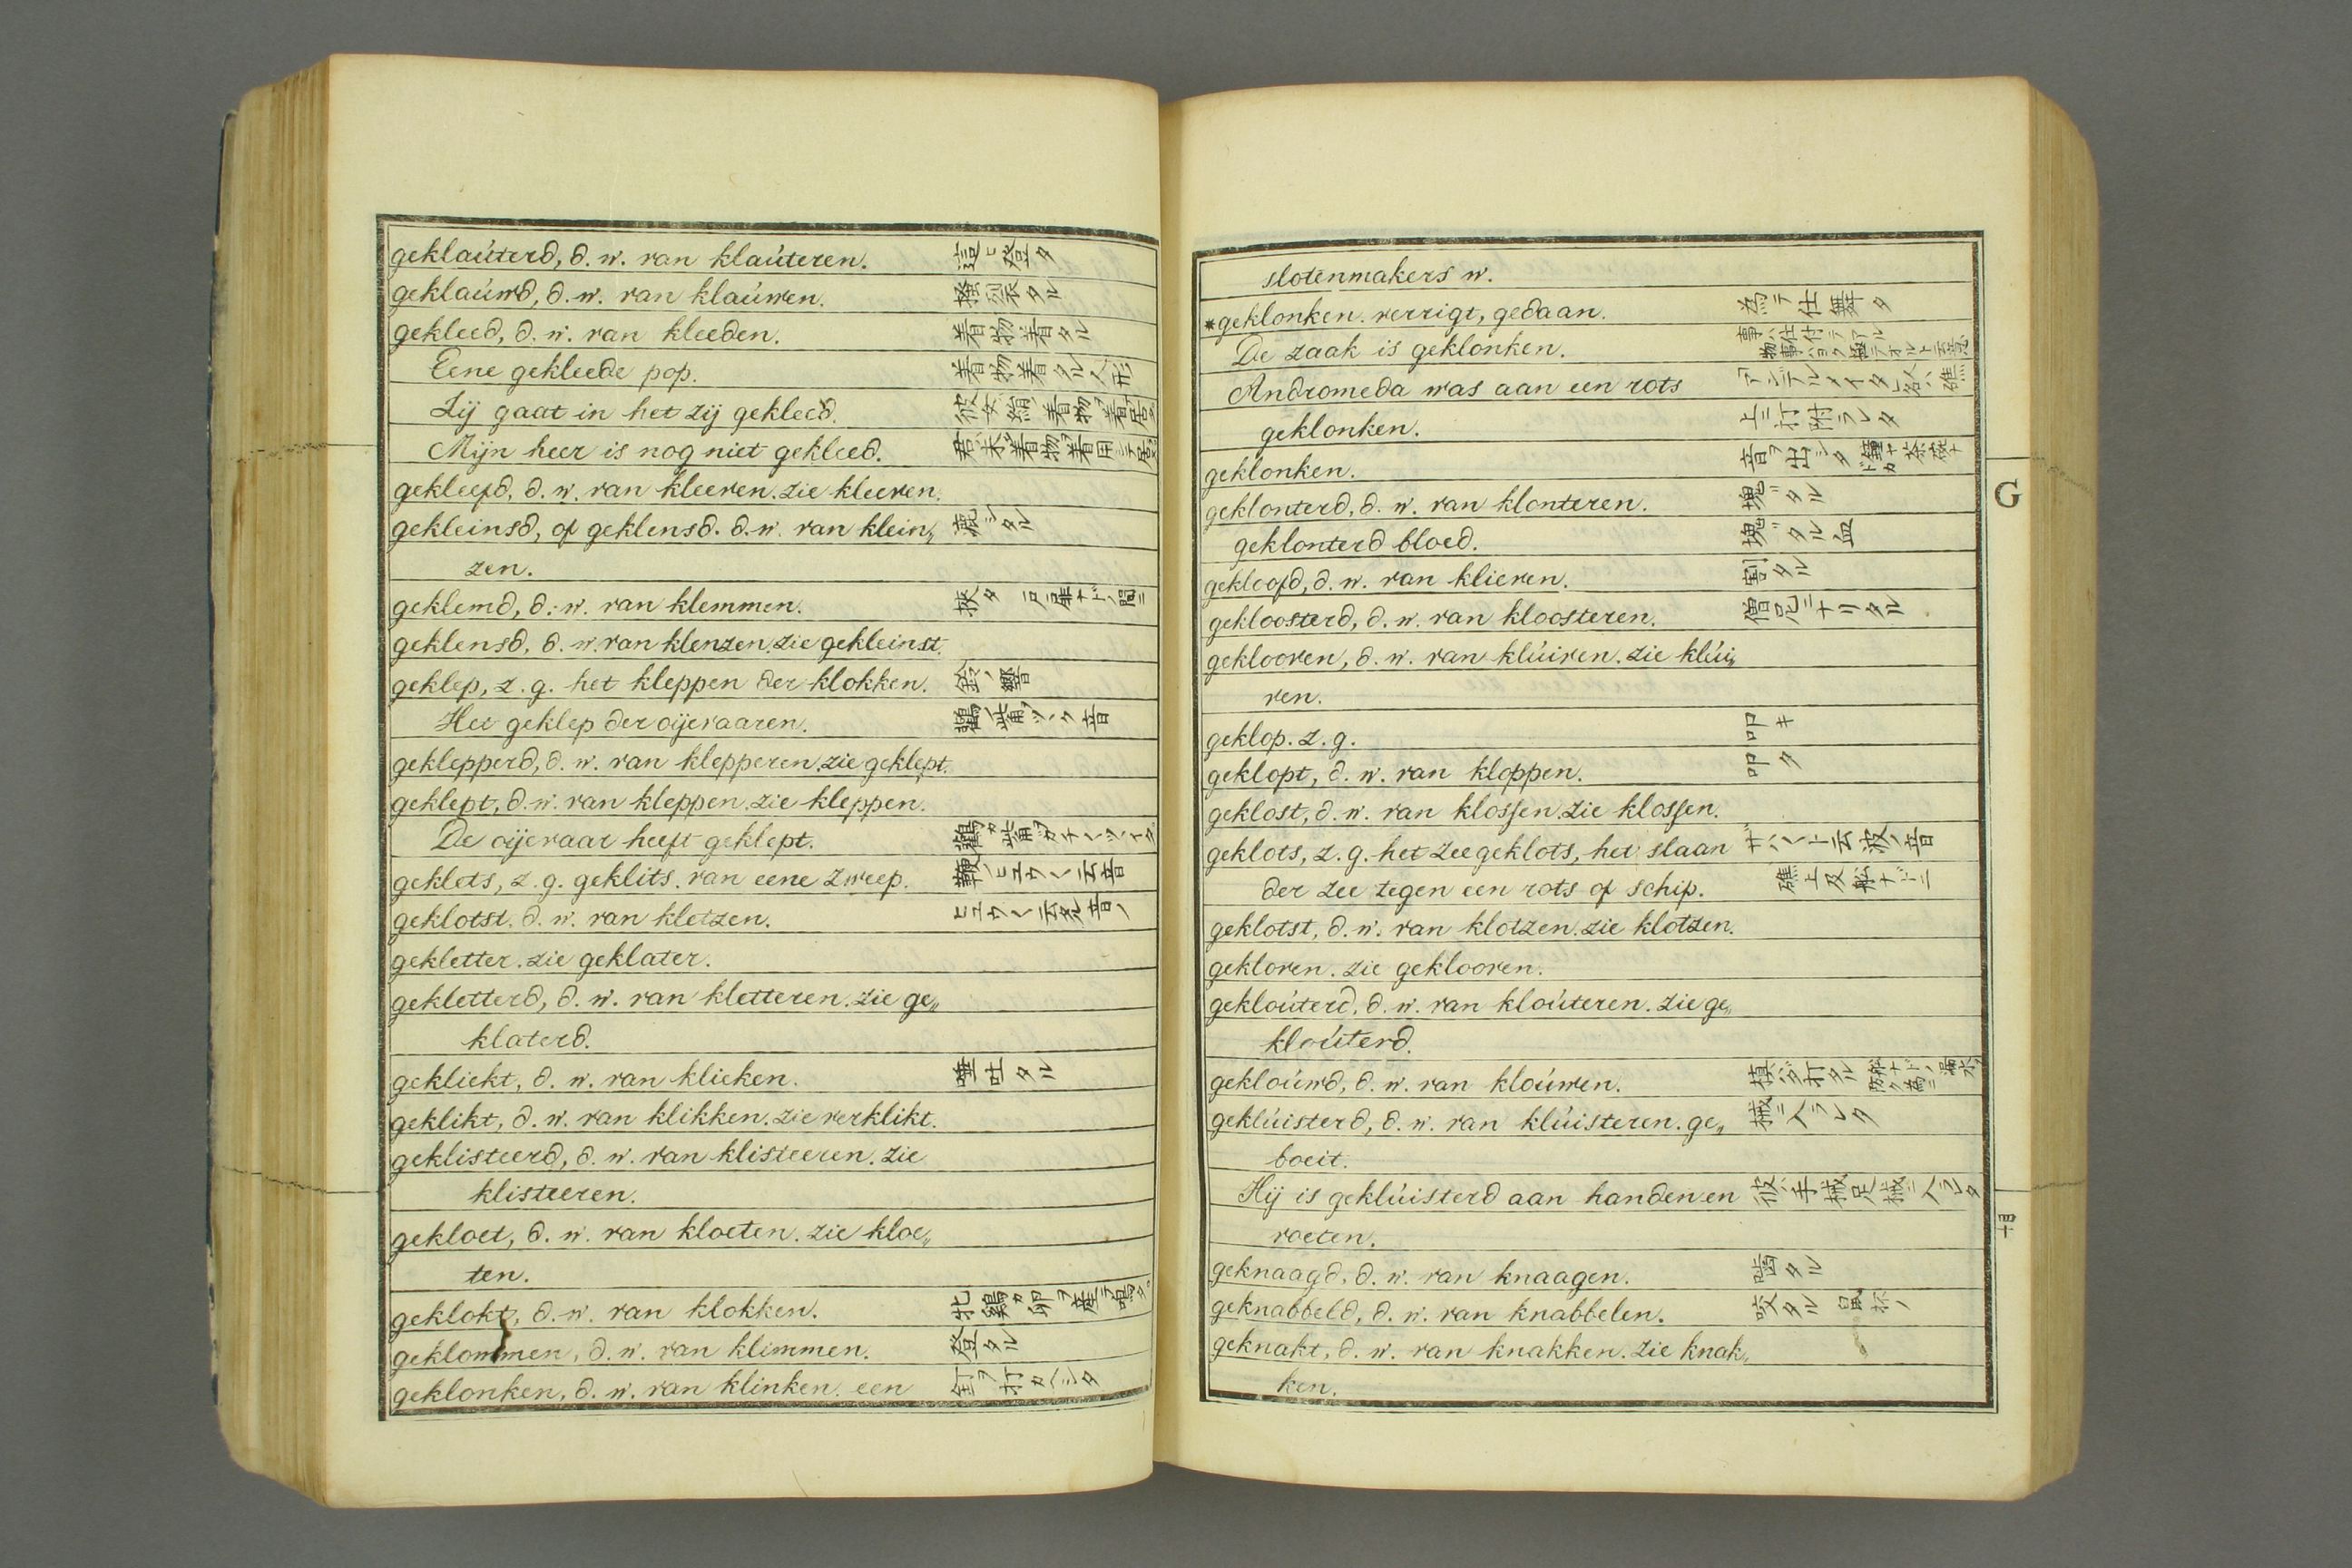 geklaúterd, d. w. van klaúteren. 這ヒ登タ
geklaúwd, d. w. van klaúwen. 掻裂タル
gekleed, d. w. van kleeden. 着物着タル
Eene gekleede pop. 着物着タル人形
Zij gaat in het zij gekleed.
Mijn heer is nog niet gekleed.
gekleefd, d. w. van kleeven. zie kleeven.
gekleinsd, of geklensd. d. w. van klein„ 漉シタル
zen.
geklemd, d. w. van klemmen.
geklensd, d. w. van klenzen. zie gekleinst.
geklep, z. g. het kleppen der klokken. 鈴ノ響
Het geklep der oijevaaren.
geklepperd, d. w. van klepperen. zie geklept.
geklept, d. w. van kleppen. zie kleppen.
De oijevaar heeft geklept.
geklets, z. g. geklits. van eene zweep.
geklotst. d. w. van kletzen.
gekletter. zie geklater.
gekletterd, d. w. van kletteren. zie ge„
klaterd.
gekliekt, d. w. van klieken. 唾吐タル
geklikt, d. w. van klikken. zie verklikt.
geklisteerd, d. w. van klisteeren. zie
klisteeren.
gekloet, d. w. van kloeten. zie kloe„
ten.
geklokt, d. w. van klokken. 牝鷄カ卵ヲ産テ鳴タ
geklommen, d. w. van klimmen. 登タル
geklonken, d. w. van klinken. een 釘ヲ打カヘシタ
slotenmakers w.
*geklonken. verrigt, gedaan. 為テ仕舞タ
De zaak is geklonken.
Andromeda was aan een rots
geklonken. 上ニ打附ラレタ
geklonken. 音ヲ出シタ
geklonterd, d. w. van klonteren. 塊ッタル
geklonterd bloed. 塊ッタル血
gekloofd, d. w. van klieven. 割タル
gekloosterd, d. w. van kloosteren. 僧尼ニナリタル
geklooven, d. w. van klúiven. zie klúi„
ven.
geklop. z. g. 叩キ
geklopt, d. w. van kloppen. 叩タ
geklost, d. w. van klossen. zie klossen.
geklots, z. g. het zeegeklots, het slaan
der zee tegen een rots of schip. 礁上及船ナドニ
geklotst, d. w. van klotzen. zie klotzen.
gekloven. zie geklooven.
gekloúterd, d. w. van kloúteren. zie ge„
kloúterd.
gekloúwd, d. w. van kloúwen.
geklúisterd, d. w. van klúisteren. ge„ 械ニ入ラレタ
boeit.
Hij is geklúisterd aan handen en 彼ハ手械足械ニ入ラレタ
voeten.
geknaagd, d. w. van knaagen. 噛タル
geknabbeld, d. w. van knabbelen. 咬タル 鼠杯ノ
geknakt, d. w. van knakken. zie knak„
ken.
G
四十